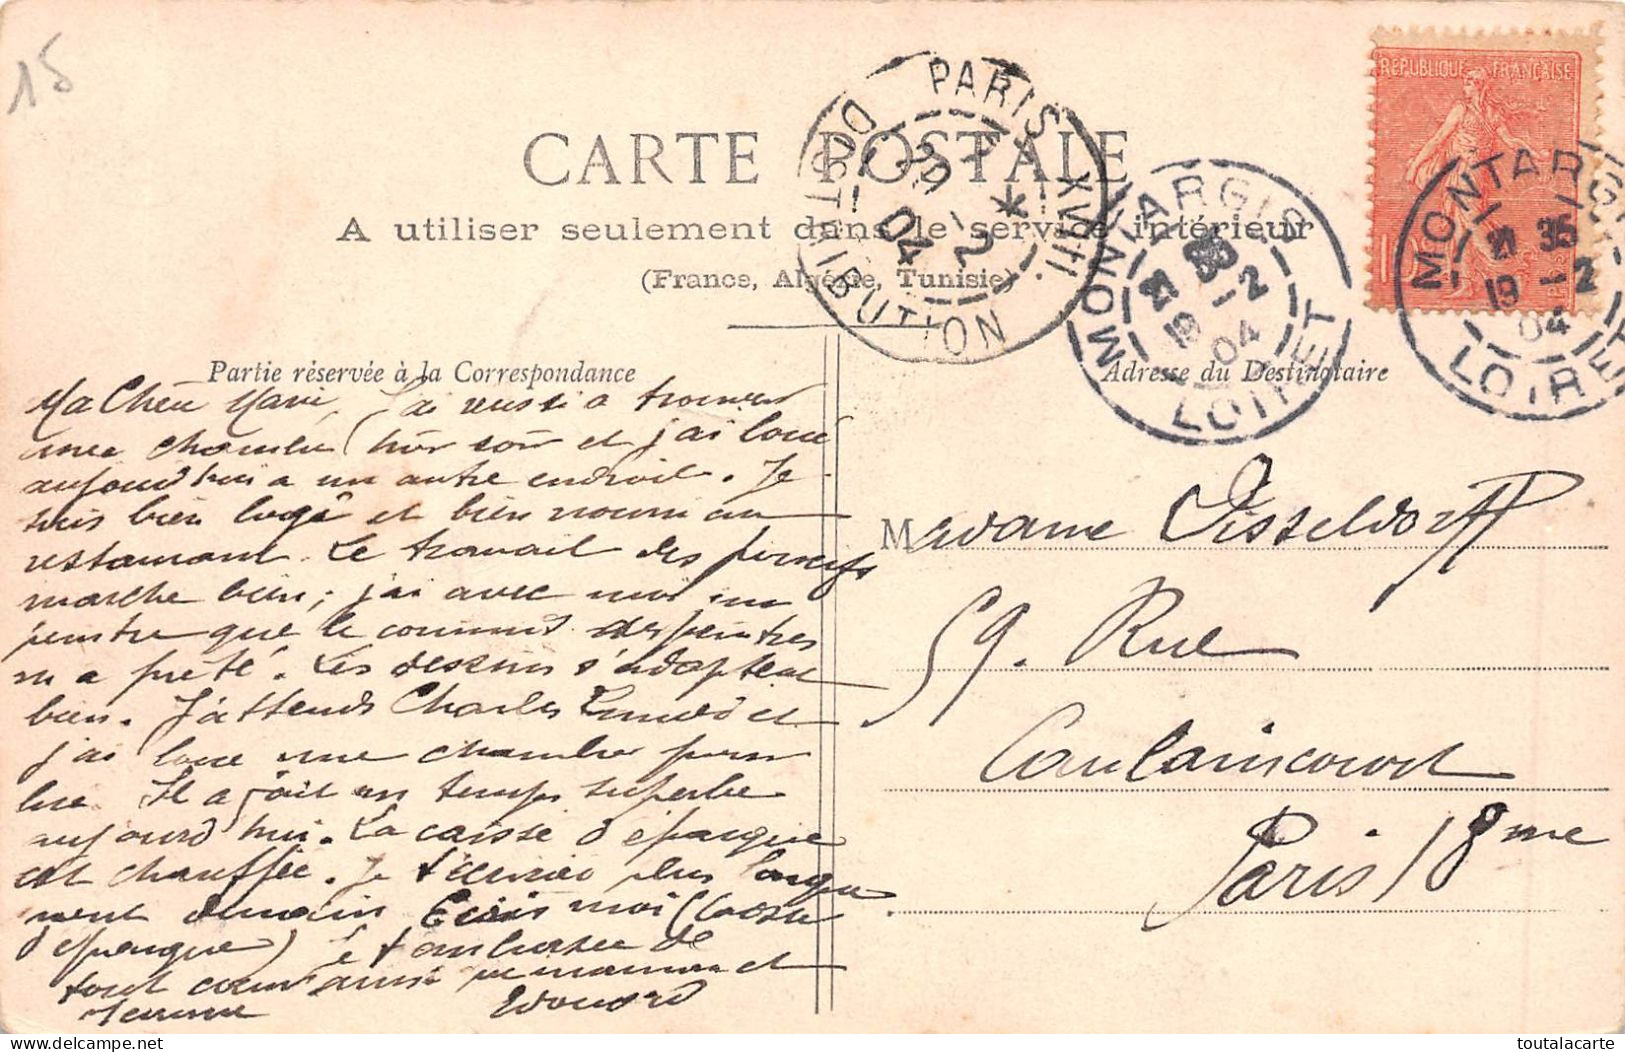 15
CARTE POSTALE
A utiliser seulement dans le service intérieur
(France, Algérie, Tunisie)
PARIS XVIII
DISTRIBUTION
04
MONTARGIS
LOIRET
19 -2
04
REPUBLIQUE FRANÇAISE
10
MONTARGIS
35
19 -2
04
LOIRET
Partie réservée à la Correspondance
Adresse du Destinataire
Ma Chère Marie, J'ai reussi a trouver
une chambre hier soir et j'ai loué
aujourd'hui a un autre endroit. Je
suis bien logé et bien nourri au
restaurant. Le travail des
marche bien; j'ai avec moi un
peintre que le commis des peintres
m'a prêté. Les dessins s'adaptent
bien. J'attends Charles et
j'ai loué une chambre pour
lui. Il a fait un temps superbe
aujourd'hui. La caisse d'épargne
est chauffée. Je t'écrirai plus longue
ment demain Ecris moi (Caisse
d'épargne) Je t'embrasse de
tout coeur ainsi que maman et
Edouard
Madame Disseldorff
59. Rue
Caulaincourt
Paris. 18eme
toutalacarte